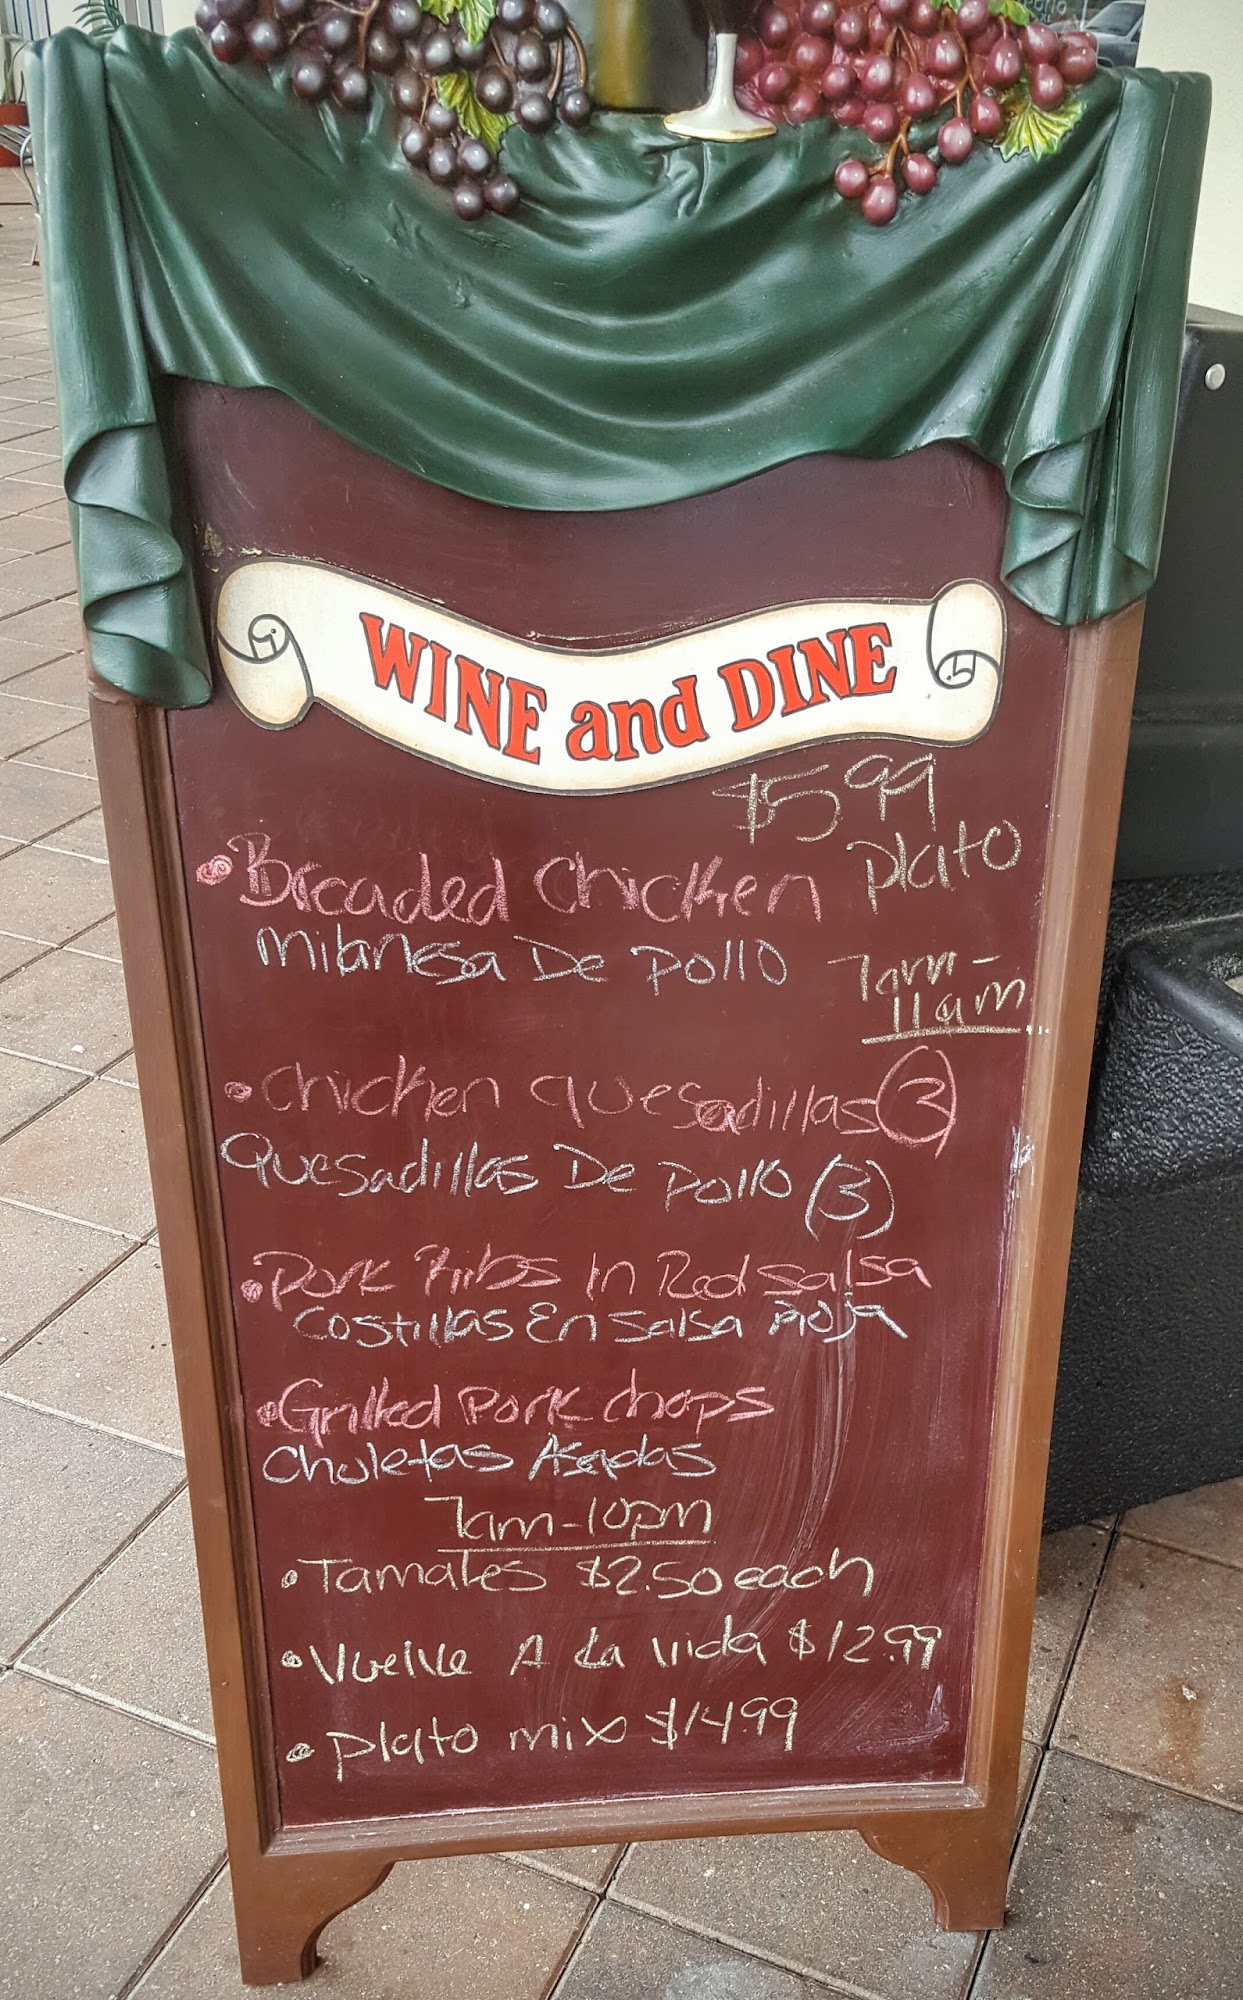 WINE and DINE
$5.99
Plato
• Breaded Chicken
Milanesa De Pollo
7am -
11am
• Chicken Quesadillas (3)
Quesadillas De Pollo (3)
• Pork Ribs in Red Salsa
Costillas En Salsa Roja
• Grilled Pork chops
Chuletas Asadas
7am-10pm
• Tamales $2.50 each
• Vuelve A La Vida $12.99
• Plato mix $14.99